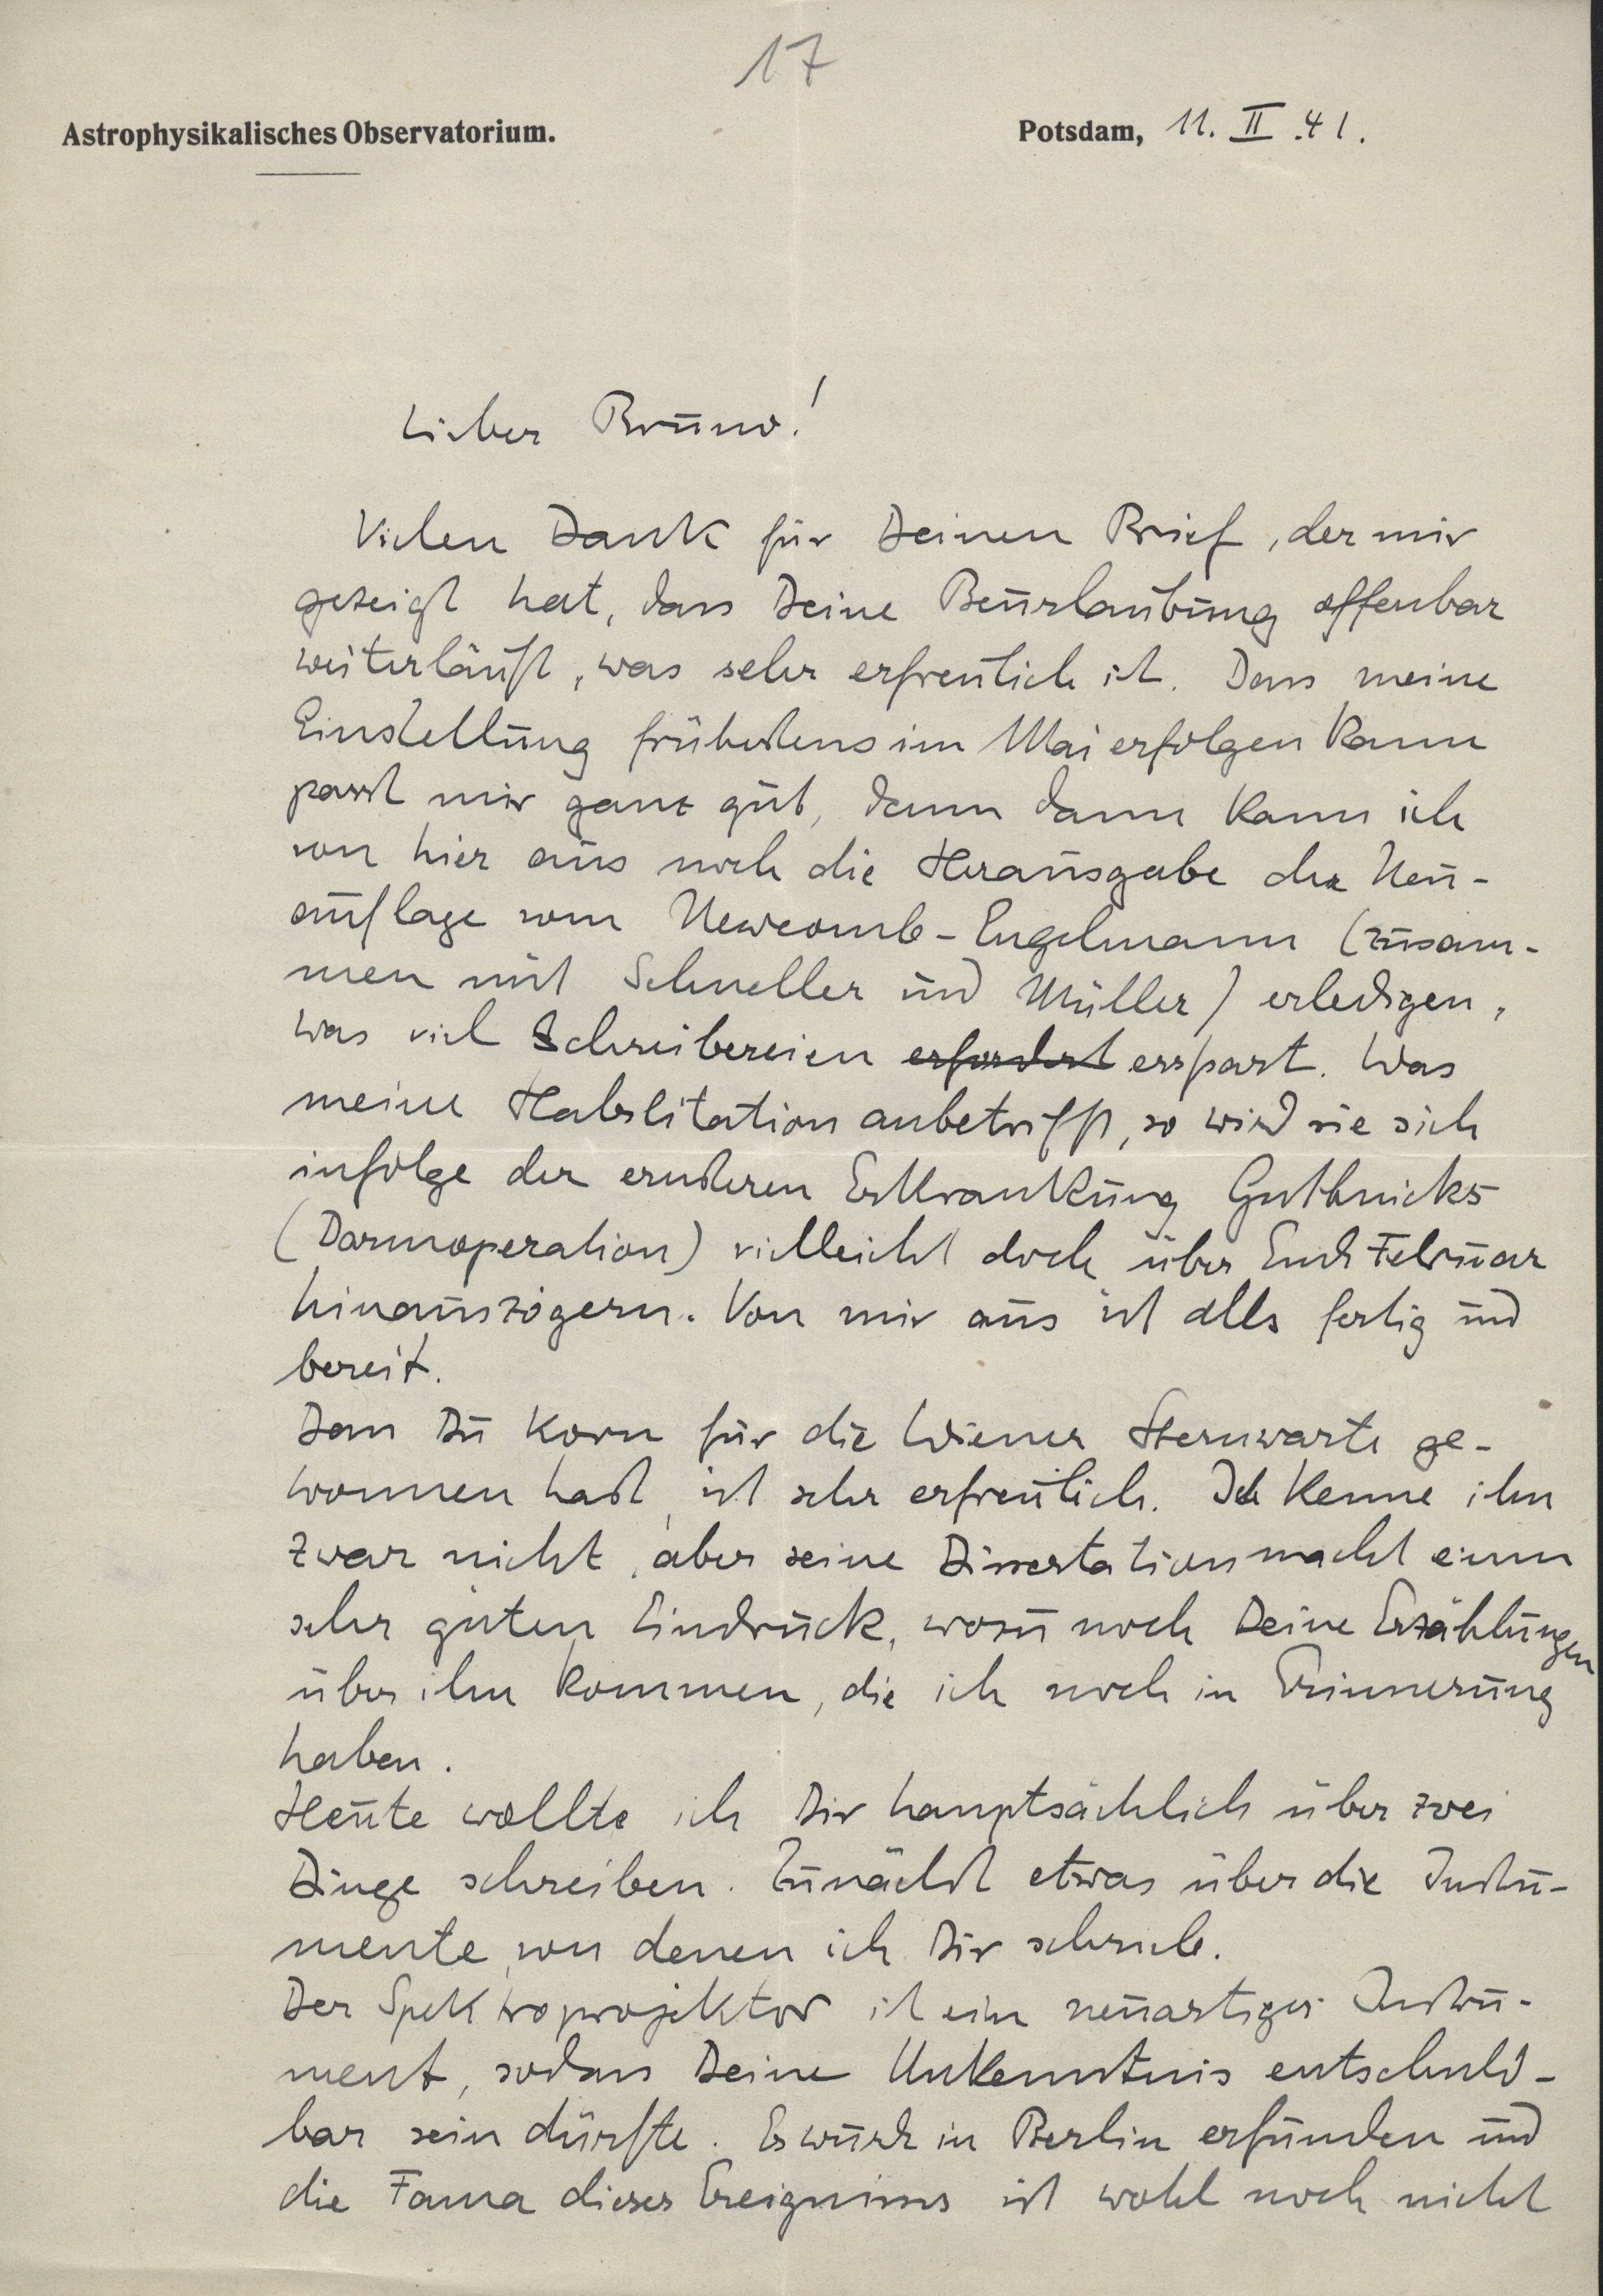 17
Astrophysikalisches Observatorium.
Potsdam, 11. II. 41.
Lieber Bruno!
Vielen Dank für Deinen Brief, der mir
gezeigt hat, dass Deine Beurlaubung offenbar
weiterläuft, was sehr erfreulich ist. Dass meine
Einstellung frühestens im Mai erfolgen kann
passt mir ganz gut, denn dann kann ich
von hier aus noch die Herausgabe der Neu-
auflage vom Newcomb-Engelmann (zusam-
men mit Schneller und Müller) erledigen,
was viel Schreibereien erfordert erspart. Was
meine Habilitation anbetrifft, so wird sie sich
infolge der ernsteren Erkrankung Guthnicks
(Darmoperation) vielleicht doch über Ende Februar
hinauszögern. Von mir aus ist alles fertig und
bereit.
Dass Du Korn für die Wiener Sternwarte ge-
wonnen hast, ist sehr erfreulich. Ich kenne ihn
zwar nicht, aber seine Dissertation macht einen
sehr guten Eindruck, wozu noch Deine Erzählungen
über ihn kommen, die ich noch in Erinnerung
haben.
Heute wollte ich Dir hauptsächlich über zwei
Dinge schreiben. Zunächst etwas über die Instru-
mente, von denen ich Dir schrieb.
Der Spektroprojektor ist ein neuartiges Instru-
ment, sodass Deine Unkenntnis entschuld-
bar sein dürfte. Es wurde in Berlin erfunden und
die Fama dieses Ereignisses ist wohl noch nicht